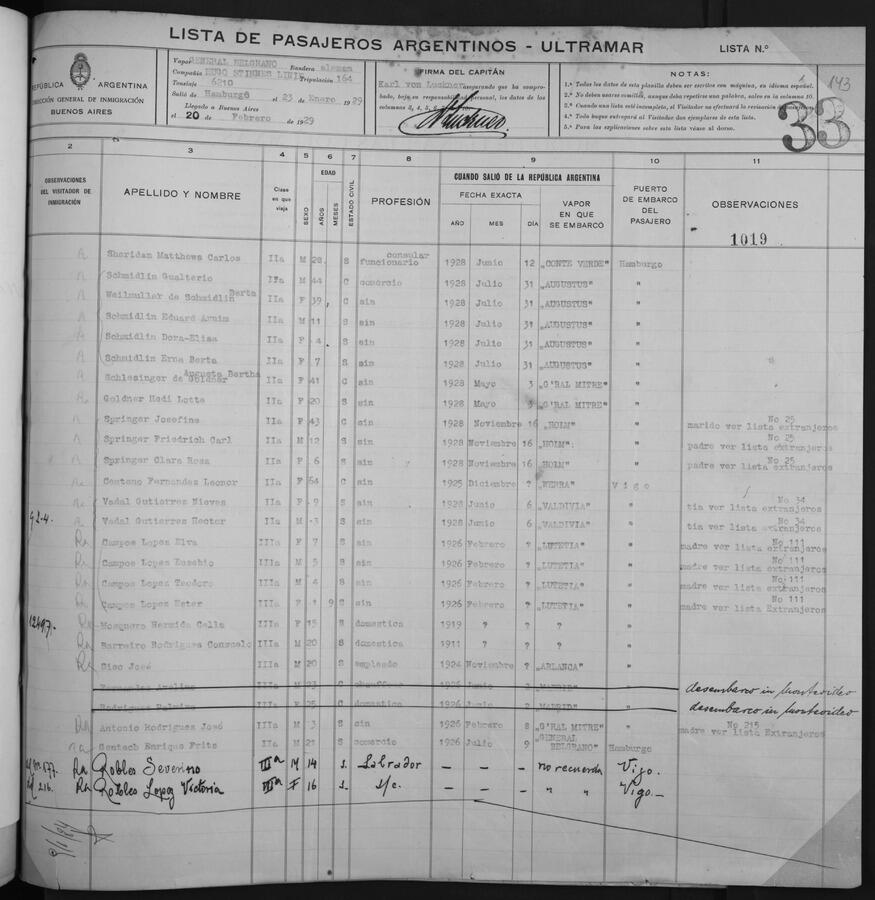 LISTA DE PASAJEROS ARGENTINOS - ULTRAMAR
LISTA N.º
143
33
REPÚBLICA ARGENTINA
DIRECCIÓN GENERAL DE INMIGRACIÓN
BUENOS AIRES
Vapor GENERAL BELGRANO Bandera alemana
Compañía HUGO STINNES LINIE Tripulación 164
Tonelaje 6210
Salió de Hamburgo el 23 de Enero de 1929
Llegado a Buenos Aires
el 20 de Febrero de 1929
FIRMA DEL CAPITÁN
Karl von Luckner
NOTAS:
1.ª Todos los datos de esta planilla deben ser escritos con máquina, en idioma español.
2.ª No deben usarse comillas, aunque deba repetirse una palabra, salvo en la columna 10.
3.ª Cuando una lista esté incompleta, el Visitador no efectuará la revisación
4.ª Todo buque entregará al Visitador dos ejemplares de esta lista.
5.ª Para las explicaciones sobre esta lista véase al dorso.
2 3 4 5 6 7 8 9 10 11
OBSERVACIONES DEL VISITADOR DE INMIGRACIÓN
APELLIDO Y NOMBRE
Clase en que viaja
SEXO
EDAD
AÑOS
MESES
ESTADO CIVIL
PROFESIÓN
CUANDO SALIÓ DE LA REPÚBLICA ARGENTINA
FECHA EXACTA
AÑO MES DÍA
VAPOR EN QUE SE EMBARCÓ
PUERTO DE EMBARCO DEL PASAJERO
OBSERVACIONES
1019
Sheridan Matthews Carlos IIa M 28 S consular funcionario 1928 Junio 12 „CONTE VERDE" Hamburgo
Schmidlin Gualterio IIa M 44 C comercio 1928 Julio 31 „AUGUSTUS" "
Weilmuller de Schmidlin Berta IIa F 39 C sin 1928 Julio 31 „AUGUSTUS" "
Schmidlin Eduard Arnim IIa M 11 S sin 1928 Julio 31 „AUGUSTUS" "
Schmidlin Dora-Elisa IIa F 4 S sin 1928 Julio 31 „AUGUSTUS" "
Schmidlin Erna Berta IIa F 7 S sin 1928 Julio 31 „AUGUSTUS" "
Schlesinger de Goldner Augusta Bertha IIa F 41 C sin 1928 Mayo 3 „G'RAL MITRE" "
Goldner Hedi Lotte IIa F 20 S sin 1928 Mayo 3 „G'RAL MITRE" "
Springer Josefine IIa F 43 C sin 1928 Noviembre 16 „HOLM" " No 25 marido ver lista extranjeros
Springer Friedrich Carl IIa M 12 S sin 1928 Noviembre 16 „HOLM" " No 25 padre ver lista extranjeros
Springer Clara Rosa IIa F 6 S sin 1928 Noviembre 16 „HOLM" " No 25 padre ver lista extranjeros
Centeno Fernandes Leonor IIa F 64 C sin 1925 Diciembre ? „WERRA" Vigo
Vadal Gutierres Nieves IIa F 9 S sin 1928 Junio 6 „VALDIVIA" " No 34 tia ver lista extranjeros
Vadal Gutierres Hector IIa M 3 S sin 1928 Junio 6 „VALDIVIA" " No 34 tia ver lista extranjeros
Campos Lopez Elva IIIa F 7 S sin 1926 Febrero ? „LUTETIA" " No 111 madre ver lista extranjeros
Campos Lopez Eusebio IIIa M 5 S sin 1926 Febrero ? „LUTETIA" " No 111 madre ver lista extranjeros
Campos Lopez Teodoro IIIa M 4 S sin 1926 Febrero ? „LUTETIA" " No 111 madre ver lista extranjeros
Campos Lopez Ester IIIa F 1 9 S sin 1926 Febrero ? „LUTETIA" " No 111 madre ver lista Extranjeros
12497. Mosquero Hermida Celia IIIa F 15 S domestica 1919 ? ? "
Barreiro Rodrigues Consuelo IIIa M 20 S domestica 1911 ? ? "
Siso José IIIa M 20 S empleado 1924 Noviembre ? „ARLANCA" "
desembarco in Montevideo
desembarco in Montevideo
Antonio Rodrigues José IIIa M 3 S sin 1926 Febrero 8 „G'RAL MITRE" " No 215 madre ver lista Extranjeros
Gentsch Enrique Frits IIIa M 21 S comercio 1926 Julio 9 „GENERAL BELGRANO" Hamburgo
Robles Severino IIIa M 14 s. Labrador — — — no recuerda Vigo.
Robles Lopez Victoria IIIa F 16 s. s/c. — — — " " Vigo.—